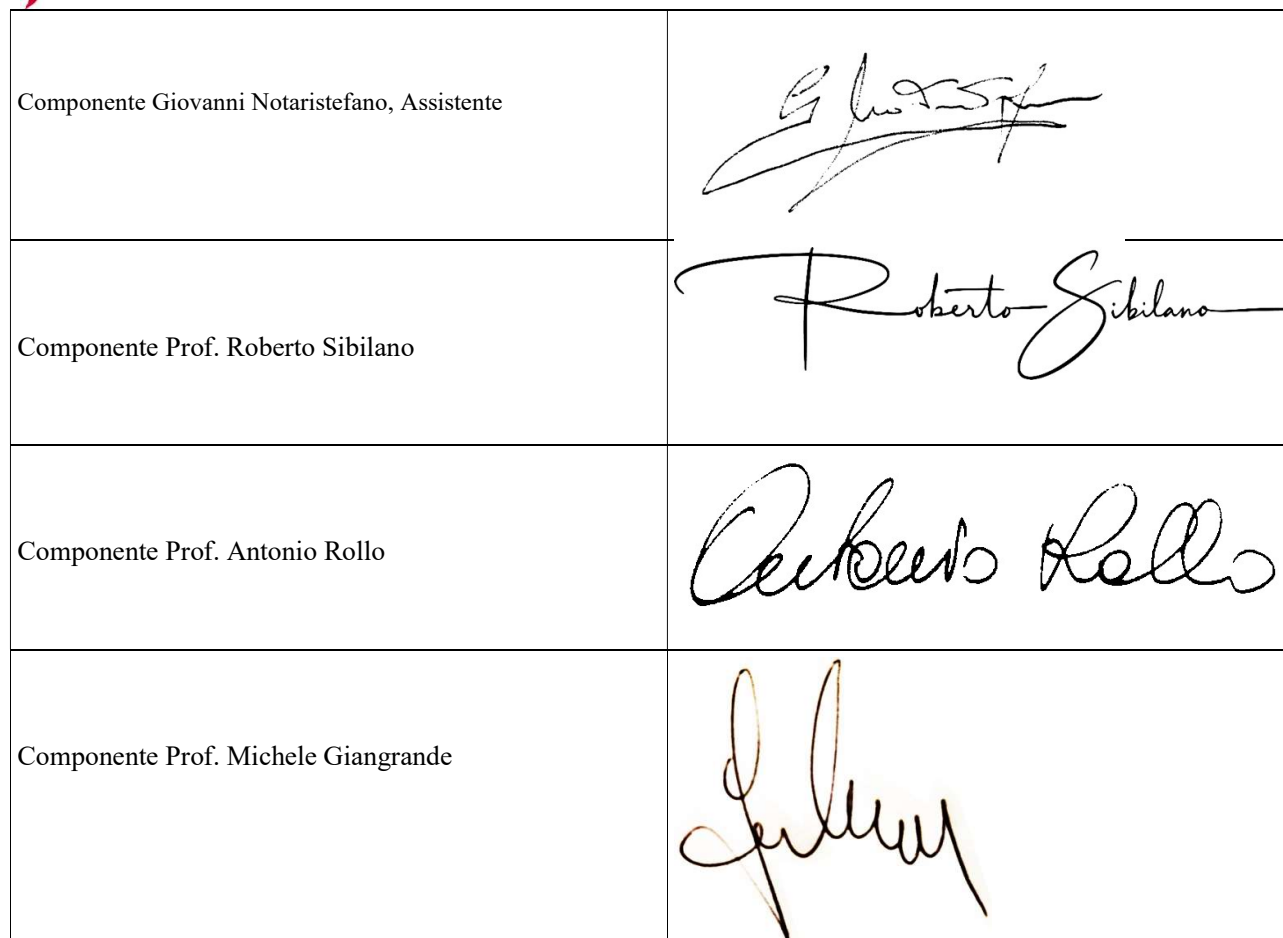 Componente Giovanni Notaristefano, Assistente
Componente Prof. Roberto Sibilano
Roberto Sibilano
Componente Prof. Antonio Rollo
Antonio Rollo
Componente Prof. Michele Giangrande